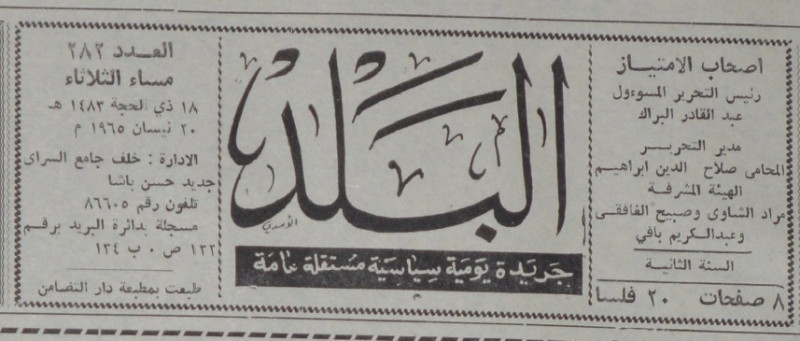 اصحاب الامتياز
رئيس التحرير المسوءول
عبد القادر البراك
مدير التحرير
المحامى صلاح الدين ابراهيم
الهيئة المشرفة
مراد الشاوى وصبيح الغافقى
وعبدالكريم بافي
السنة الثانية
٨ صفحات ٢٠ فلسا
البلد
الأسدي
جريدة يومية سياسية مستقلة عامة
العدد ٢٨٢
مساء الثلاثاء
١٨ ذي الحجة ١٤٨٣ هـ
٢٠ نيسان ١٩٦٥ م
الادارة : خلف جامع السراى
جديد حسن باشا
تلفون رقم ٨٦٦٠٥
مسجلة بدائرة البريد برقم
١٢٢ ص ٠ ب ١٢٤
طبعت بمطبعة دار التضامن